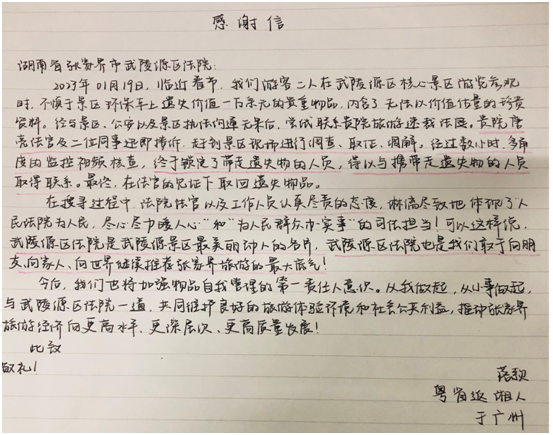 感谢信
湖南省张家界市武陵源区法院:
2023年01月19日,临近春节,我们游客二人在武陵源区核心景区游览参观
时,不慎于景区环保车上遗失价值一万余元的贵重物品,内含了无法以价值估量的珍贵
资料。经与景区、公安以及景区执法沟通无果后,尝试联系贵院旅游速裁法庭。贵院
法官及二位同事迅即接诉,赶到景区现场进行调查、取证、调解,经过数小时、多角
度的监控视频核查,终于锁定了带走遗失物的人员,得以与携带走遗失物的人员
取得联系。最终,在法官的见证下取回遗失物品。
在搜寻过程中,法院法官以及工作人员认真尽责的态度,淋漓尽致地体现了人
民法院为人民,尽心尽力暖人心"和"为人民群众办实事"的司法担当!可以这样说,
武陵源区法院是武陵源景区最美丽动人的名片,武陵源区法院也是我们敢于向朋
友、向家人、向世界继续推荐张家界旅游的最大底气!
今后,我们也将加强物品自我管理的第一责任人意识。从我做起,从小事做起,
与武陵源区法院一道,共同维护良好的旅游体验环境和社会公共利益,推动张家界
旅游经济向更高水平、更深层次、更高质量发展!
此致
敬礼!
粤省返湘人
于广州